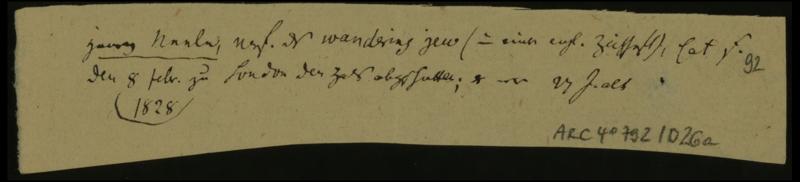 Henry Neele, verf. des wandering jew (in einer engl. Zeitschft), hat s.
92
den 8 febr. zu London den Hals abgeschnitten; er war 27 J. alt
1828
ARC 4° 792 / D26a